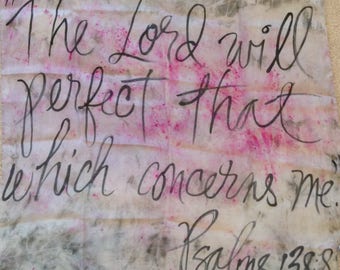 "The Lord will
perfect that
which concerns me."
Psalms 138:8